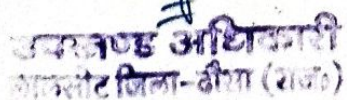 उपखण्ड अधिकारी
लालसोट जिला-दौसा (राज०)